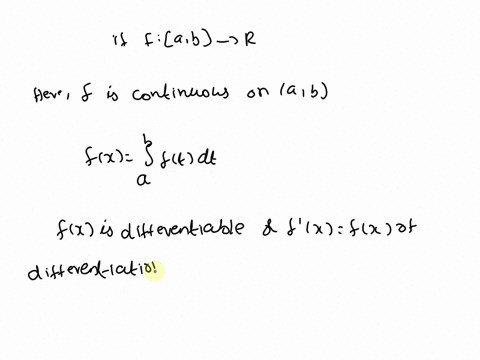 if f:[a,b] → R
Here, f is continuous on (a,b)
f(x)= ∫_a^b f(t) dt
f(x) is differentiable & f'(x)=f(x) of
differentiation